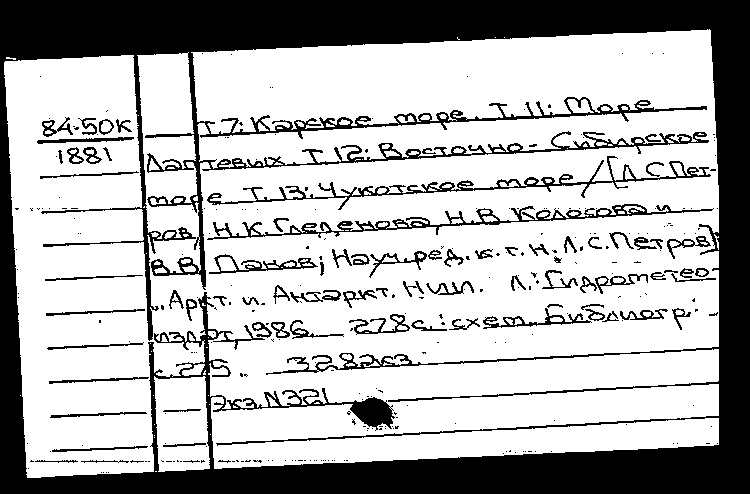 84-50К
1881
Т.7: Карское море. Т. 11: Море
Лаптевых. Т.12: Восточно-Сибирское
море Т.13: Чукотское море / [Л.С.Пет-
ров, Н.К. Гледенова, Н.В. Колосова и
В.В. Панов; Науч.ред. к.г.н. Л.С.Петров];
Аркт. и Антаркт. НИИ. Л.: Гидрометео-
издат, 1986. 278с.: схем. Библиогр.:
с.275. 328экз.
Экз.N321